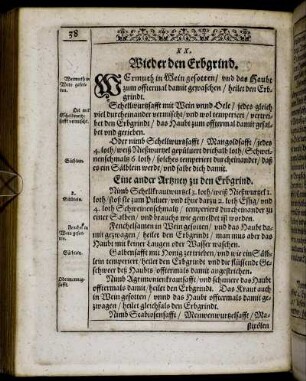 38
XX.
Wieder den Erbgrind.
Wermuth in Wein gesotten / vnd das Haubt
zum offtermal damit gewaschen / heilet den Erb-
grindt.
Schellwurtzsafft mit Wein vnnd Oele / jedes gleich
viel durcheinander vermischt / vnd wol temperiert / vertrei-
bet den Erbgrindt / das Haubt zum offtermal damit gesal-
bet vnd gerieben.
Oder nimb Schellwurtzsafft / Mangoldsafft / jedes
4. loth / weiß Nießwurtz gepüluert drithalb loth / Schwei-
nenschmaltz 6. loth / solches temperiert durcheinander / daß
es ein Sälblein werde / vnd salbe dich damit.
Eine ander Artzney zu den Erbgrind.
Nimb Schellkrautwurtzel 3. loth / weiß Nießwurtz 1.
loth / stoß sie zum Puluer / vnd thue darzu 2. loth Essig / vnd
4. loth Schweinenschmaltz / temperiers durcheinander zu
einer Salben / vnd brauchs wie gemeldt ist worden.
Fenchelsamen in Wein gesotten / vnd das Haubt da-
mit gezwagen / heilet den Erbgrind / man mus aber das
Haubt mit keiner Laugen oder Wasser waschen.
Galbensafft mit Honig zertrieben / vnd wie ein Sälb-
lein temperiert / heilet den Erbgrindt vnd die fliessende Ge-
schweer des Haubts / offtermals damit angestrichen.
Nimb Agrimonienkrautsafft / vnd schmiere das Haubt
offtermals damit / heilet den Erbgrindt. Das Kraut auch
in Wein gesotten / vnnd das Haubt offtermals damit ge-
zwagen / heilet gleichfals den Erbgrindt.
Nimb Scabiosensafft / Menwenwurtzelsafft / Ma-
Wermuth in
Sälblein.
2.
Sälblein.
Sälblein.